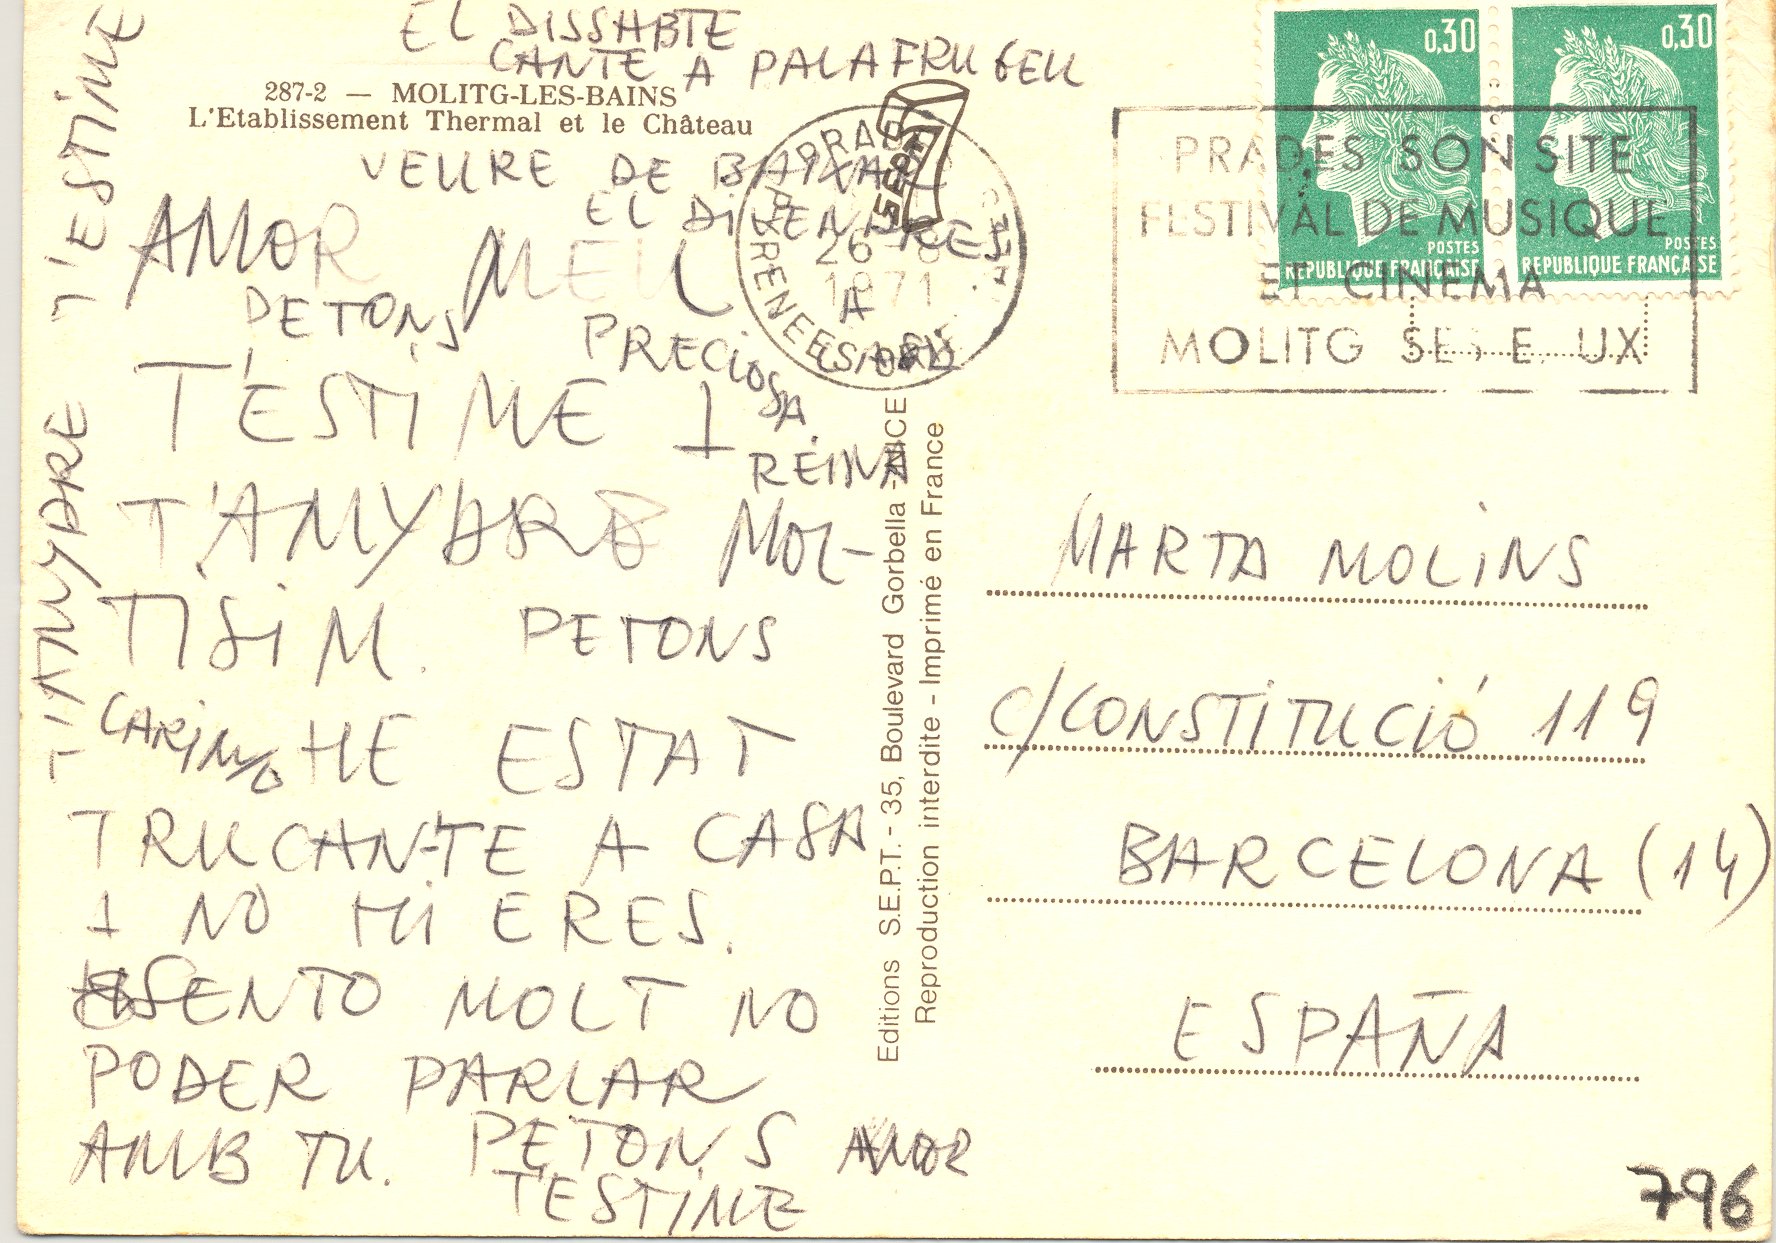 EL DISSABTE
CANTE A PALAFRUGELL
287-2 — MOLITG-LES-BAINS
L'Etablissement Thermal et le Château
VEURE DE BAIXAR
EL DIVENDRES
A
AMOR MEU
PETONS
PRECIOSA.
T'ESTIME I
REINA
T'ANYORE MOL-
TISIM. PETONS
CARINYO HE ESTAT
TRUCANT-TE A CASA
I NO HI ERES.
SENTO MOLT NO
PODER PARLAR
AMB TU. PETONS AMOR
T'ESTIME
T'ANYORE T'ESTIME
Editions S.E.P.T. - 35, Boulevard Gorbella - NICE
Reproduction interdite - Imprimé en France
SEPT
PRADES
PYRENEES OR
26 8
1971
0,30
POSTES
REPUBLIQUE FRANÇAISE
0,30
POSTES
REPUBLIQUE FRANÇAISE
PRADES SON SITE
FESTIVAL DE MUSIQUE
ET CINEMA
MOLITG SES E UX
MARTA MOLINS
C/CONSTITUCIÓ 119
BARCELONA (14)
ESPAÑA
796